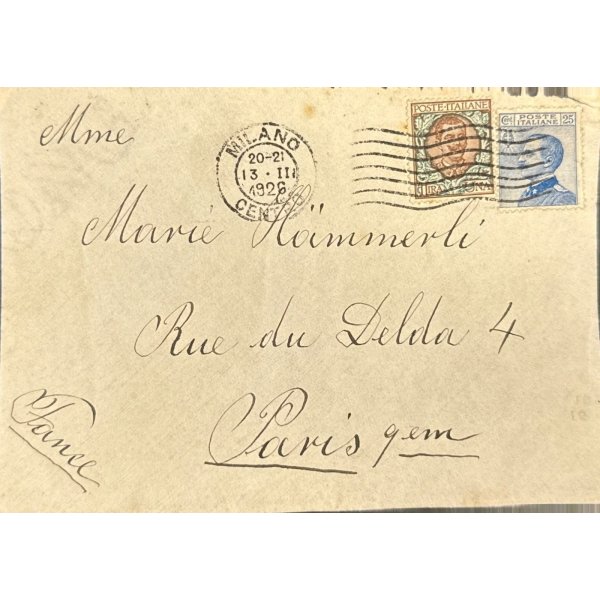 Mme
MILANO
20-21
13 · III
1926
CENTRO
POSTE·ITALIANE
1 LIRA UNA
POSTE
ITALIANE
25
Marie Hämmerli
Rue du Delda 4
Paris 9em
France